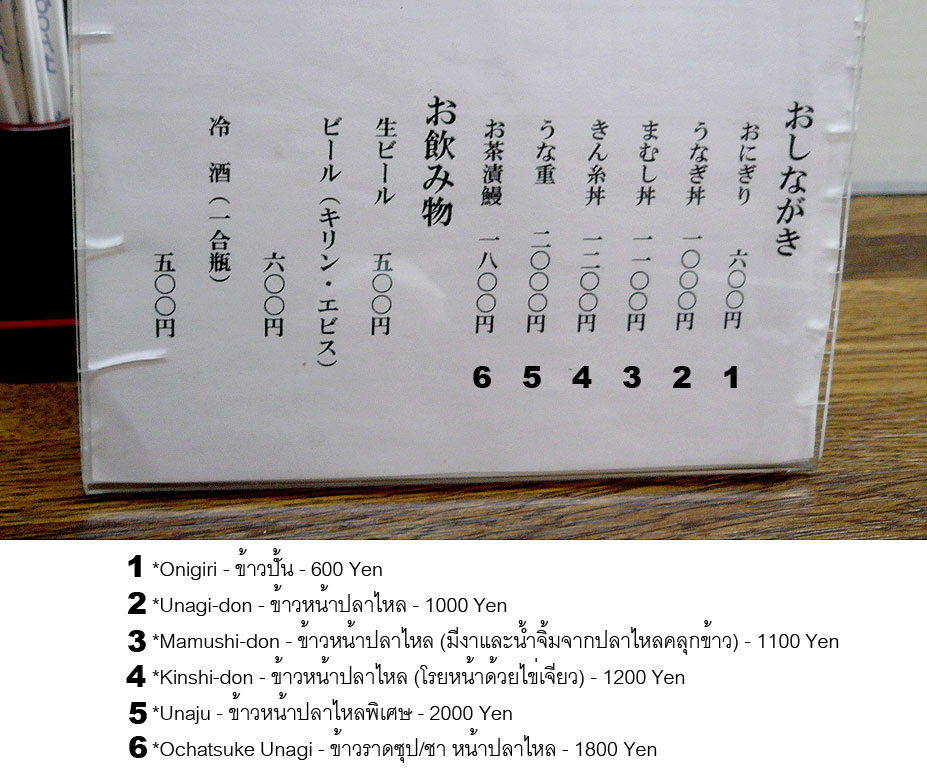 おしながき
おにぎり 六〇〇円
うなぎ丼 一〇〇〇円
まむし丼 一一〇〇円
きん糸丼 一二〇〇円
うな重 二〇〇〇円
お茶漬鰻 一八〇〇円
お飲み物
生ビール 五〇〇円
ビール(キリン・エビス)
六〇〇円
冷 酒(一合瓶)
五〇〇円
6 5 4 3 2 1
1 *Onigiri - ข้าวปั้น - 600 Yen
2 *Unagi-don - ข้าวหน้าปลาไหล - 1000 Yen
3 *Mamushi-don - ข้าวหน้าปลาไหล (มีงาและน้ำจิ้มจากปลาไหลคลุกข้าว) - 1100 Yen
4 *Kinshi-don - ข้าวหน้าปลาไหล (โรยหน้าด้วยไข่เจียว) - 1200 Yen
5 *Unaju - ข้าวหน้าปลาไหลพิเศษ - 2000 Yen
6 *Ochatsuke Unagi - ข้าวราดซุป/ชา หน้าปลาไหล - 1800 Yen